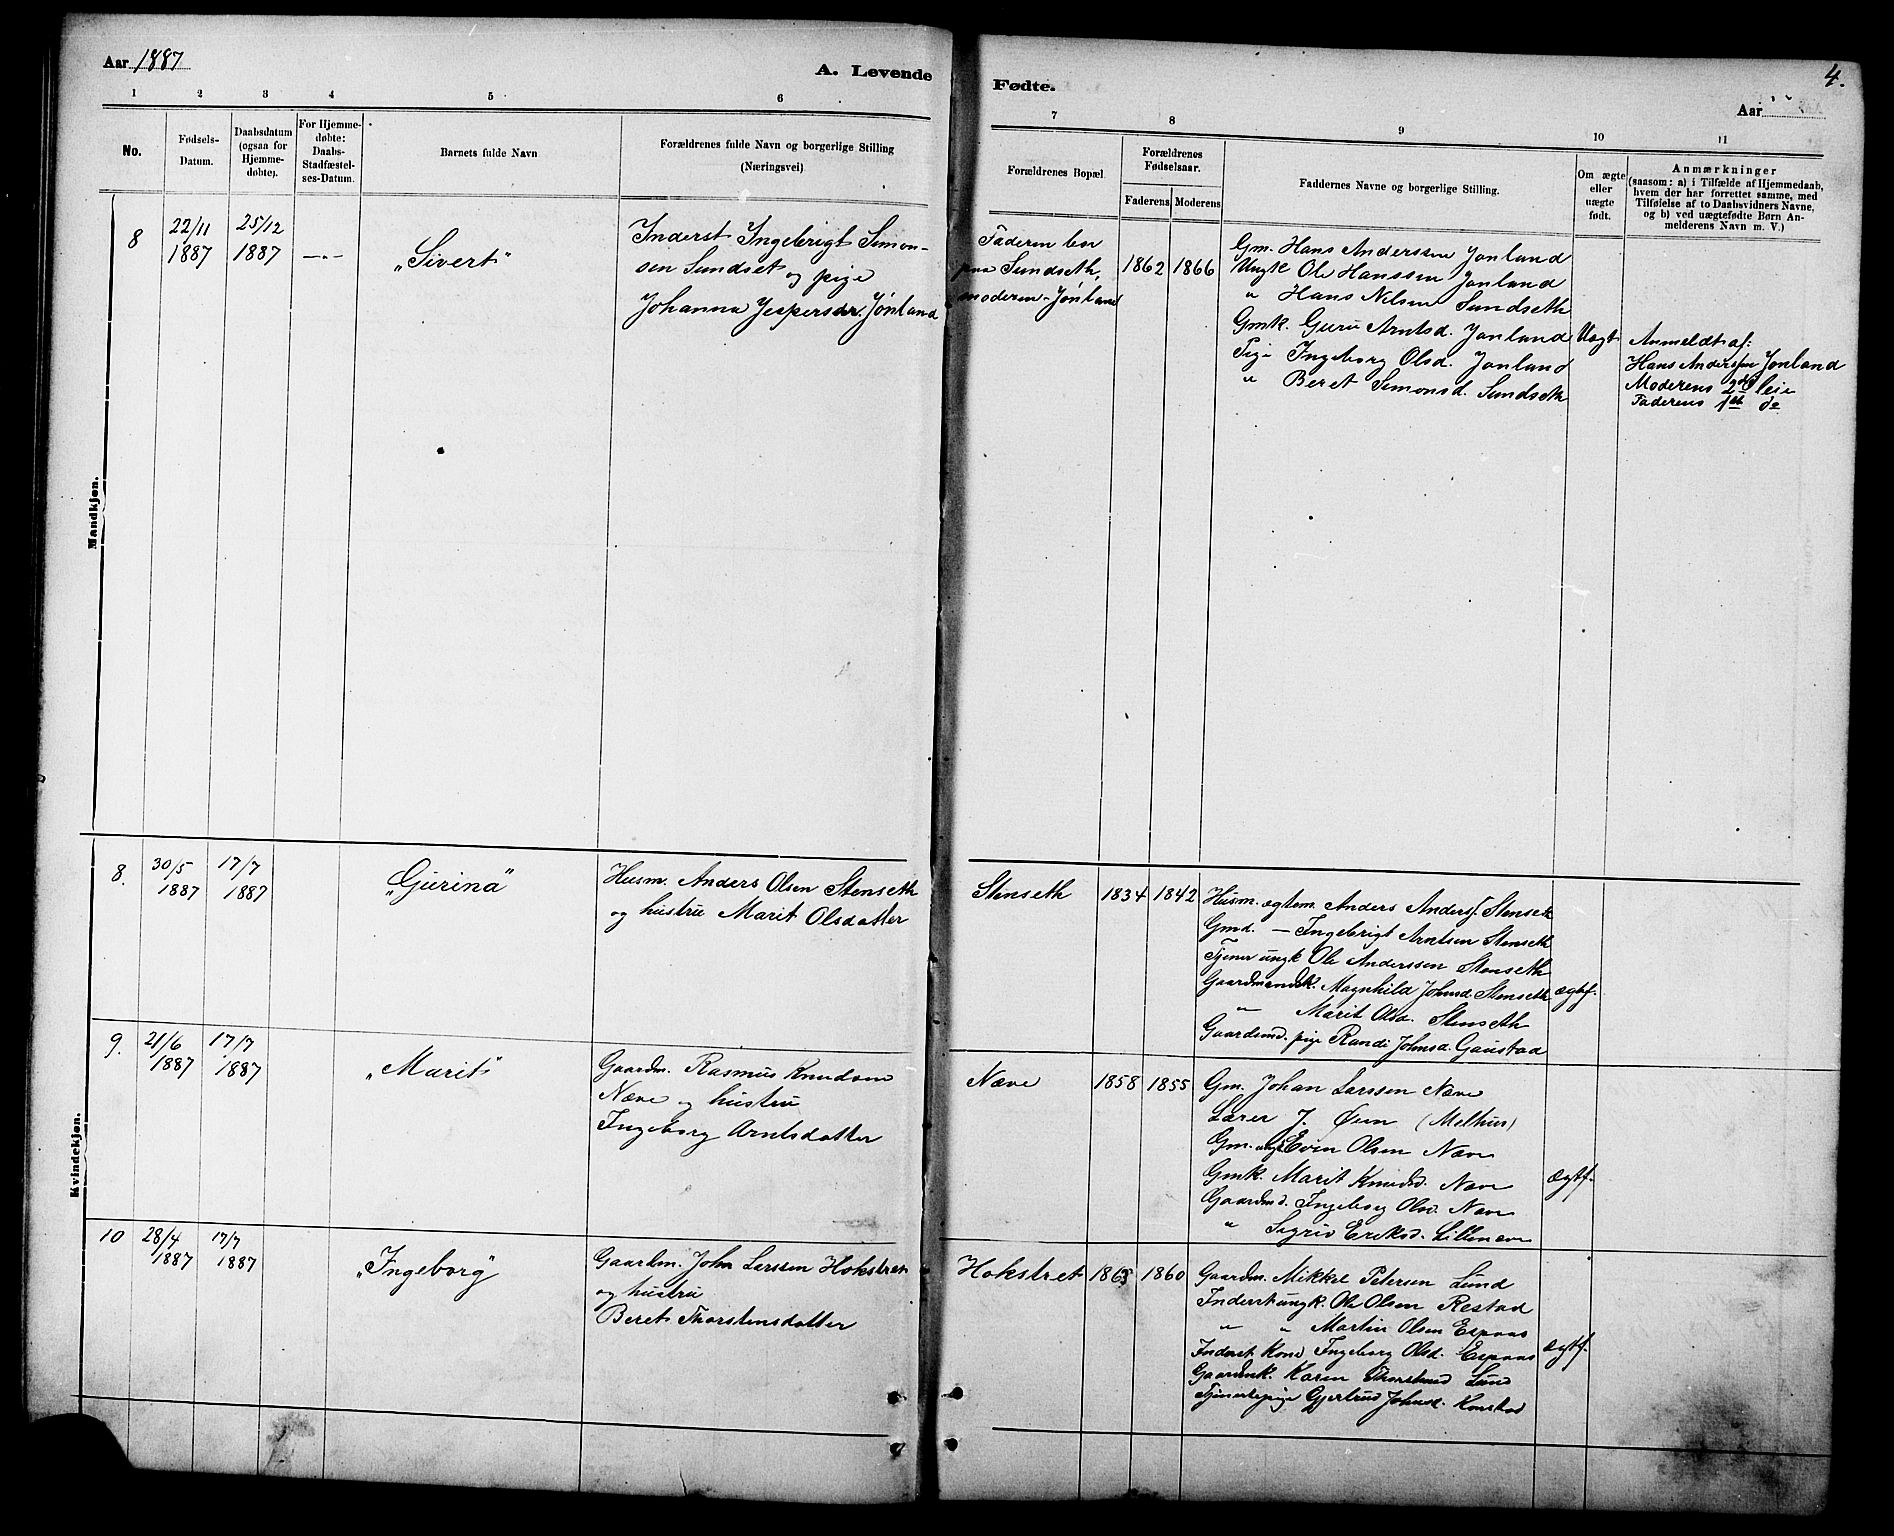 Aar 1887
A. Levende
Fødte.
4.
Aar
1 2 3 4 5 6
7 8 9 10 11
No.
Fødsels-
Datum.
Daabsdatum
(ogsaa for
Hjemme-
døbte).
For Hjemme-
døbte:
Daabs-
Stadfæstel-
ses-Datum.
Barnets fulde Navn
Forældrenes fulde Navn og borgerlige Stilling
(Næringsvei)
Forældrenes Bopæl.
Forældrenes
Fødselsaar.
Faderens Moderens
Faddernes Navne og borgerlige Stilling.
Om ægte
eller
uægte
født.
Anmærkninger
(saasom: a) i Tilfælde af Hjemmedaab,
hvem der har forrettet samme, med
Tilføielse af to Daabsvidners Navne,
og b) ved uægtefødte Børn An-
melderens Navn m. V.)
Mandkjøn.
8
22/11
1887
25/12
1887
—"—
"Sivert"
Inderst Ingebrigt Simon-
sen Sundset og pige
Johanna Jespersdr. Jønland
Faderen bor
paa Sundseth,
moderen - Jønland
1862 1866
Gm. Hans Anderssen Jonland
Ungk Ole Hanssen Jonland
" Hans Nilsen Sundseth
Gmk. Guru Arntsd. Jonland
Pige Ingeborg Olsd. Jonland
" Beret Simonsd. Sundseth
Uægt
Anmeldt af:
Hans Anderssen Jonland
Moderens 2det leie
Faderens 1ste do
Kvindekjøn.
8.
30/5
1887
17/7
1887
"Gurina"
Husm. Anders Olsen Stenseth
og hustru Marit Olsdatter
Stenseth
1834 1842
Husm. ogtem. Anders Anders. Stenseth
Gmd. — Ingebrigt Arntsen Stenseth
Tjener ungk Ole Anderssen Stenseth
Gaardmandsk. Magnhild Johnsd. Stenseth
" Marit Olsd. Stenseth
Gaardsmd. pige Randi Johnsd. Gaustad
ægtf.
9.
21/6
1887
17/7
1887
"Marit"
Gaardm. Rasmus Knudsen
Næve og hustru
Ingeborg Arntsdatter
Næve
1858 1855
Gm. Johan Larssen Næve
Lærer J. Øien (Melhus)
Gm. ungk Even Olsen Næve
Gmk. Marit Knudsd. Næve
Gaardmd. Ingeborg Olsd. Næve
" Sigrid Eriksd. Lillenæve
ægtf.
10
28/4
1887
17/7
1887
"Ingeborg"
Gaardm. John Larssen Hokstret
og hustru
Beret Thorstensdatter
Hokstret
1863 1860
Gaardm. Mikkel Petersen Lund
Inderst ungk. Ole Olsen Restad
" " Martin Olsen Espaas
Inderst Kone Ingeborg Olsd. Espaas
Gaardmk. Karen Thorstensd Lund
Tjenestepige Gjertrud Johnsd. Konstad
ægtf.